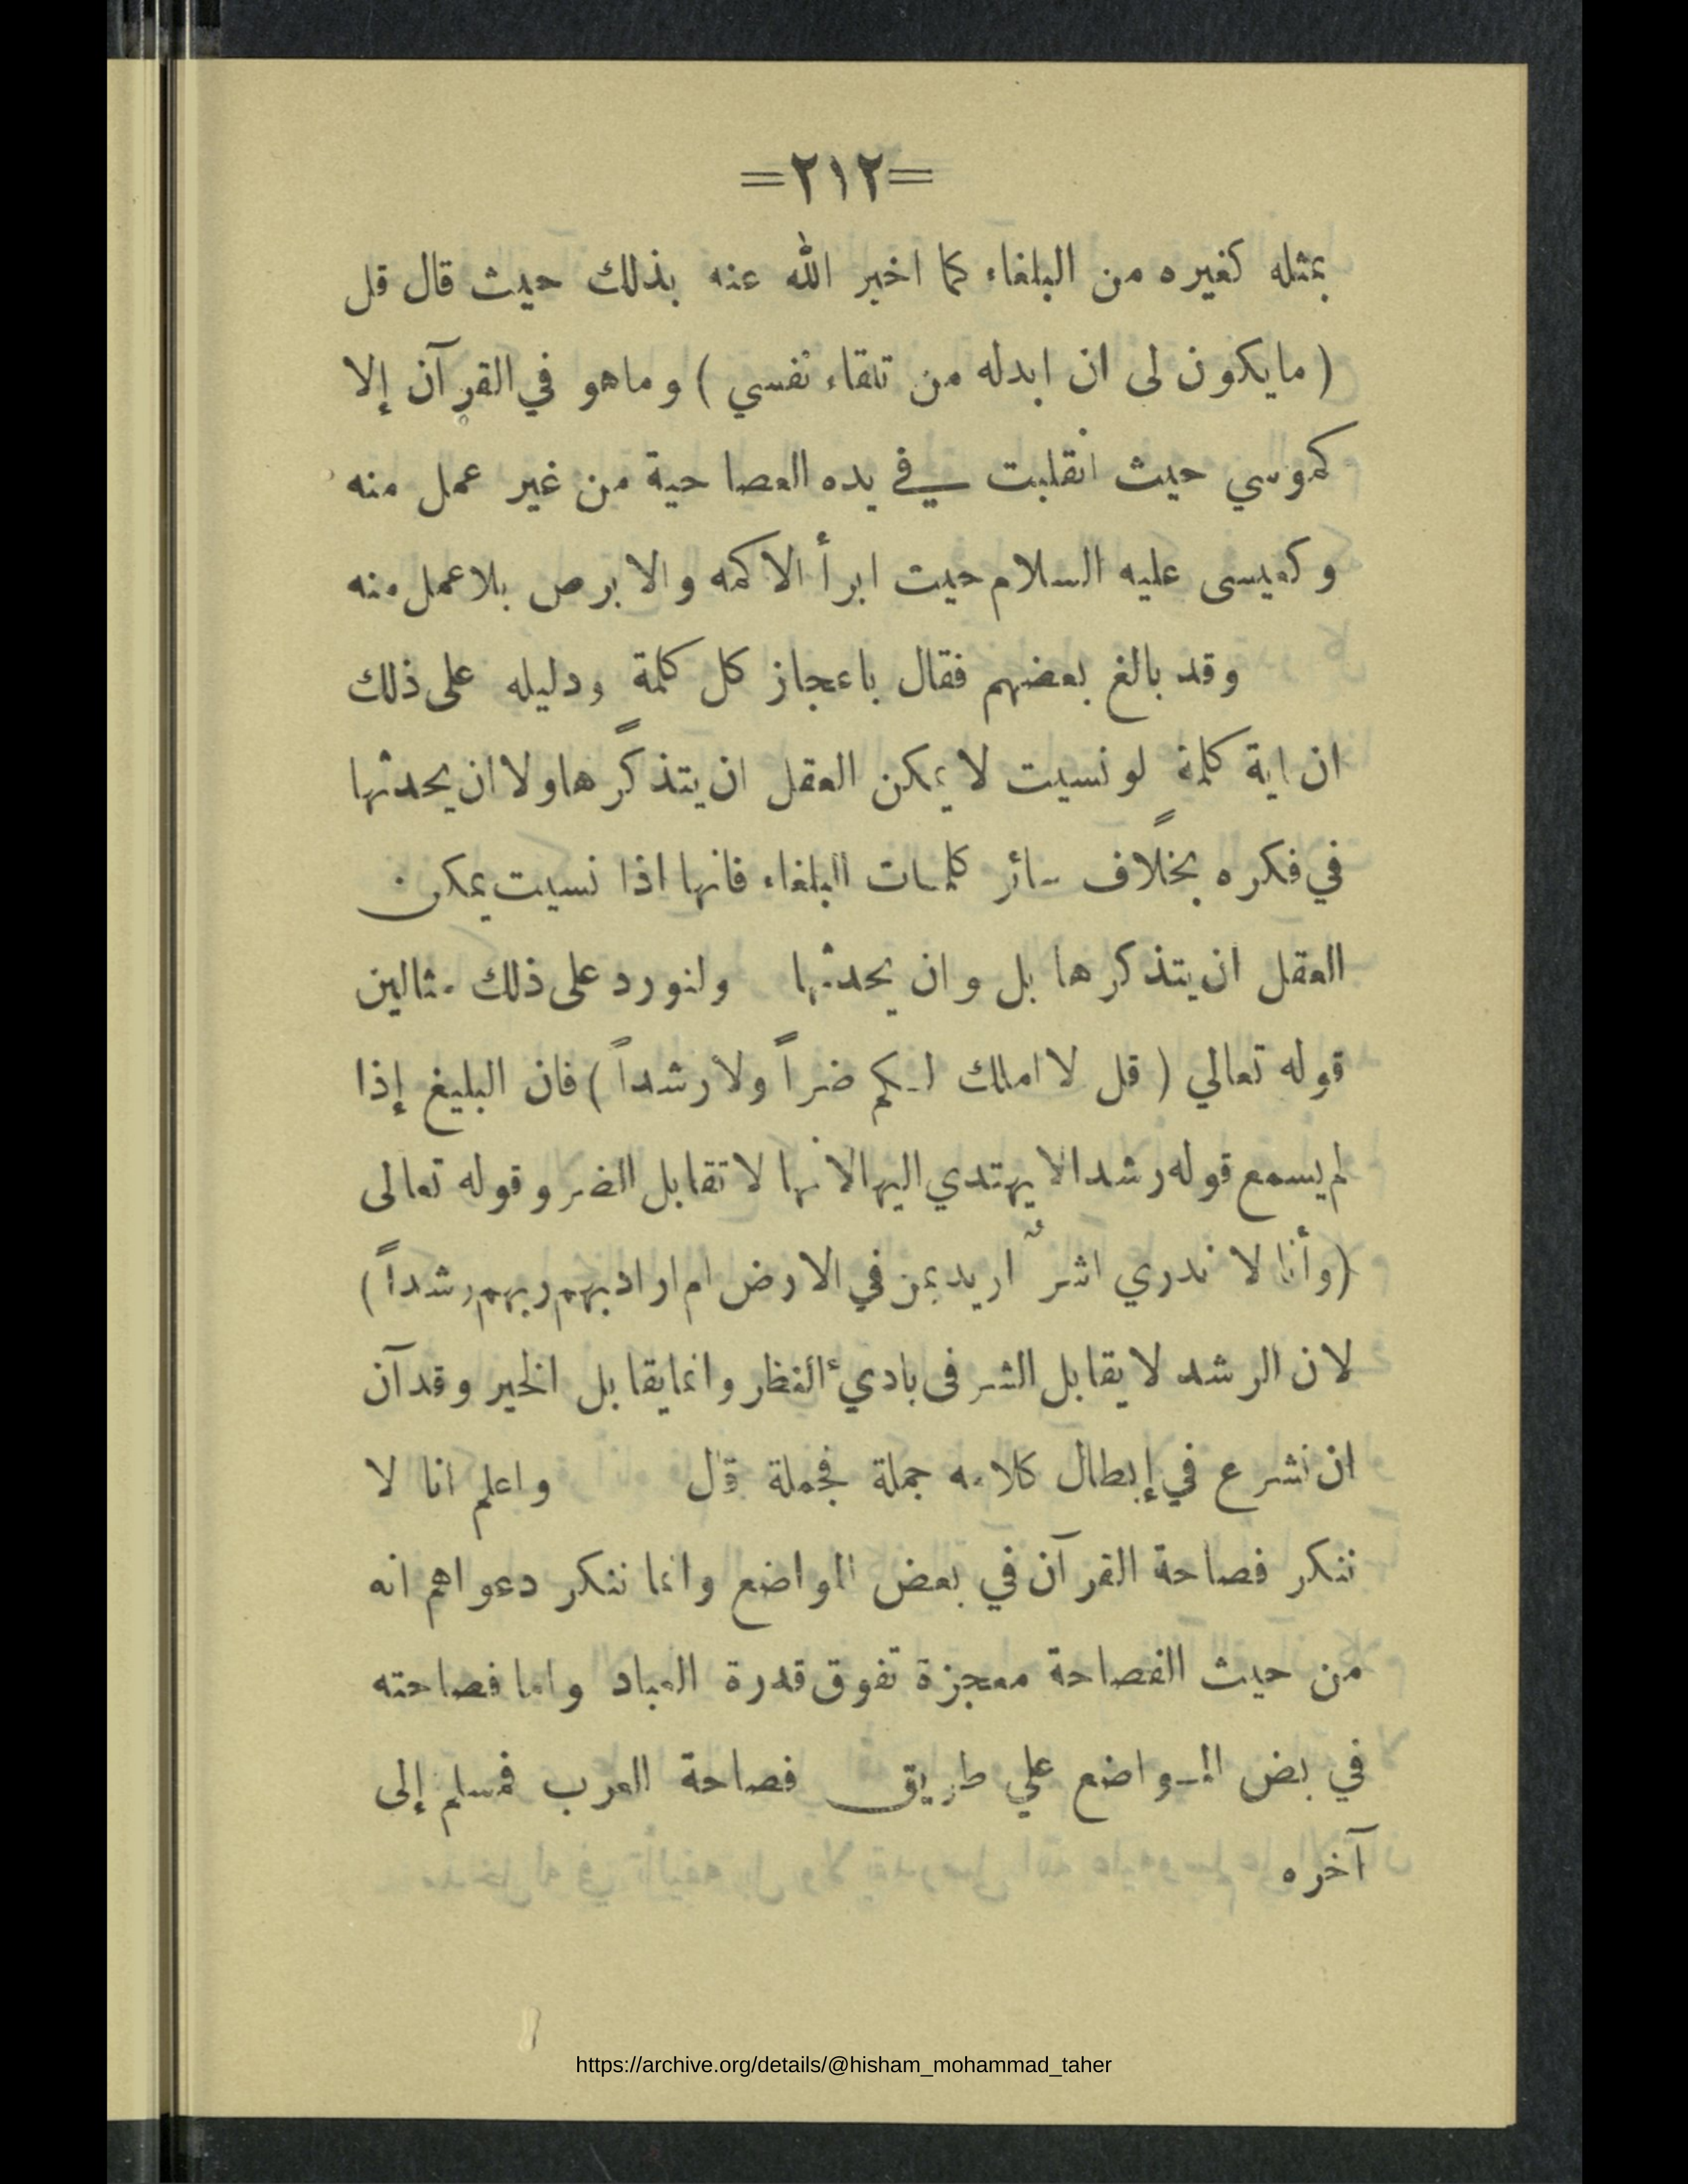 =٢١٢=
بمثله كغيره من البلغاء كما اخبر الله عنه بذلك حيث قال قل
( مايكون لى ان ابدله من تلقاء نفسي ) وماهو في القرآن إلا
كموسي حيث انقلبت في يده العصا حية من غير عمل منه
وكعيسى عليه السلام حيت ابرأ الاكمه والابرص بلاعمل منه
وقد بالغ بعضهم فقال باعجاز كل كلمة ودليله على ذلك
ان اية كلمة لو نسيت لا يمكن العقل ان يتذكرها ولا ان يحدثها
في فكره بخلاف سائر كلمات البلغاء فانها اذا نسيت يمكن
العقل ان يتذكرها بل وان يحدثها ولنورد على ذلك مثالين
قوله تعالي ( قل لا املك لكم ضراً ولا رشداً ) فان البليغ إذا
لم يسمع قوله رشدا لا يهتدي اليها لانها لا تقابل الضر وقوله تعالى
(وأنا لا ندري اشرٌ اريد بمن في الارض ام اراد بهم ربهم رشداً )
لان الرشد لا يقابل الشر فى باديء النظر وانما يقابل الخير وقد آن
ان نشرع في إبطال كلامه جملة فجملة قال واعلم انا لا
ننكر فصاحة القرآن في بعض المواضع وانما ننكر دعواهم انه
من حيث الفصاحة معجزة تفوق قدرة العباد واما فصاحته
في بض المواضع علي طريق فصاحة العرب فمسلم إلى
آخره
https://archive.org/details/@hisham_mohammad_taher